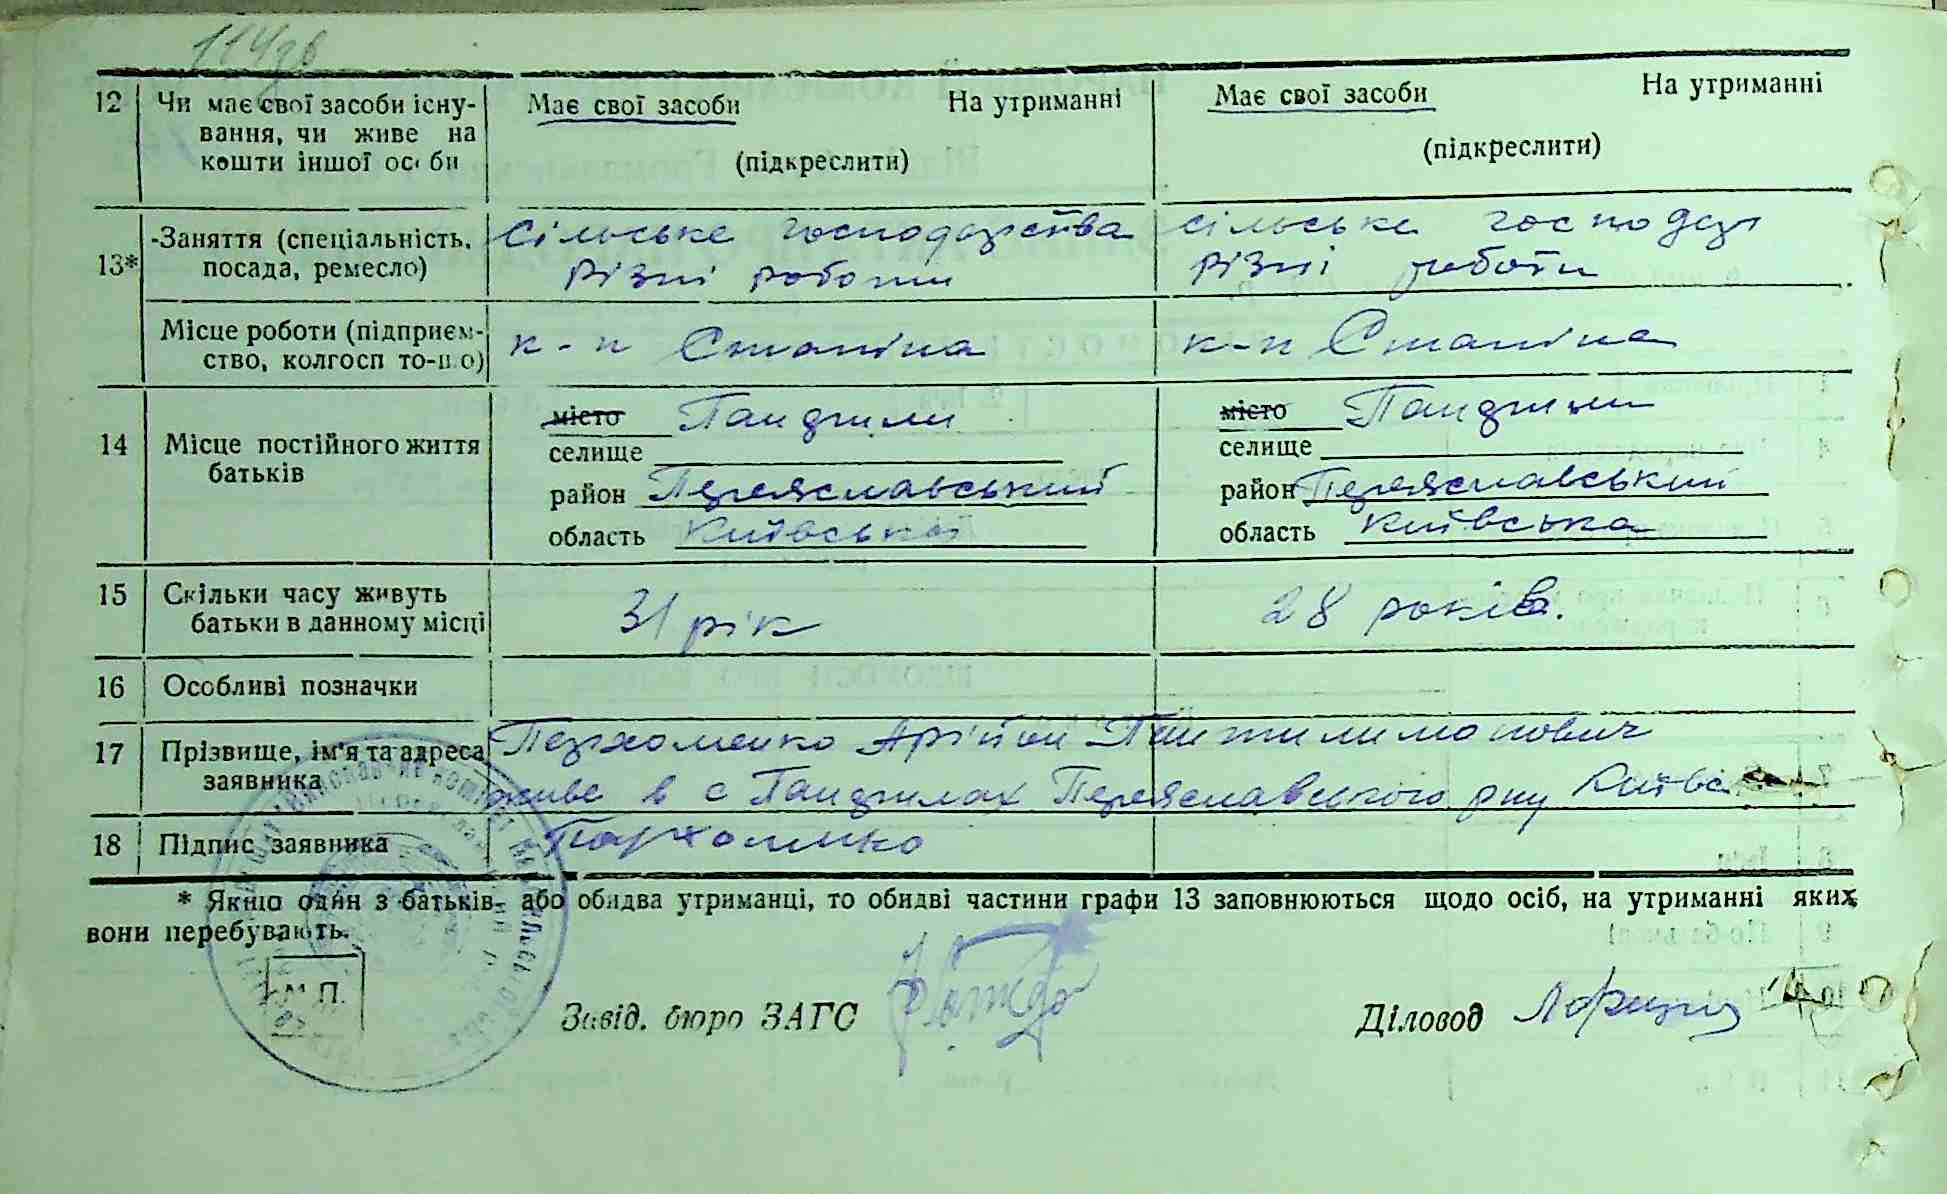 114зв
12 Чи має свої засоби існу- Має свої засоби На утриманні Має свої засоби На утриманні
вання, чи живе на
кошти іншої особи (підкреслити) (підкреслити)
13* -Заняття (спеціальність, Сільське господарства сільське господар
посада, ремесло) різні роботи різні роботи
Місце роботи (підприєм- к-п Сталіна к-п Сталіна
ство, колгосп то-що)
місто Панджили місто Панджили
14 Місце постійного життя селище селище
батьків район Переяславський район Переяславський
область Київської область Київська
15 Скільки часу живуть 31 рік 28 років.
батьки в данному місці
16 Особливі позначки
17 Прізвище, ім'я та адреса Пархоменко Пантилимонович
заявника живе в с Панджилах Переяславського рну Київс
18 Підпис заявника Пархоменко
* Якщо один з батьків- або обидва утриманці, то обидві частини графи 13 заповнюються щодо осіб, на утриманні яких
вони перебувають.
М.П.
Завід. бюро ЗАГС Діловод